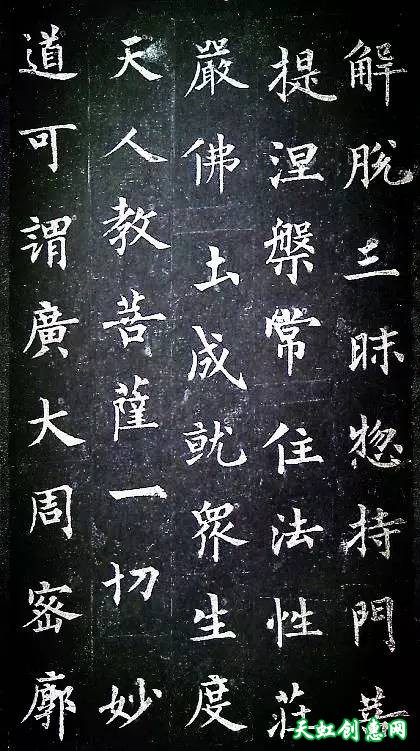 解脱三昧惣持門菩
提涅槃常住法性莊
嚴佛土成就衆生度
天人教菩薩一切妙
道可謂廣大周密廓
天虹创意网